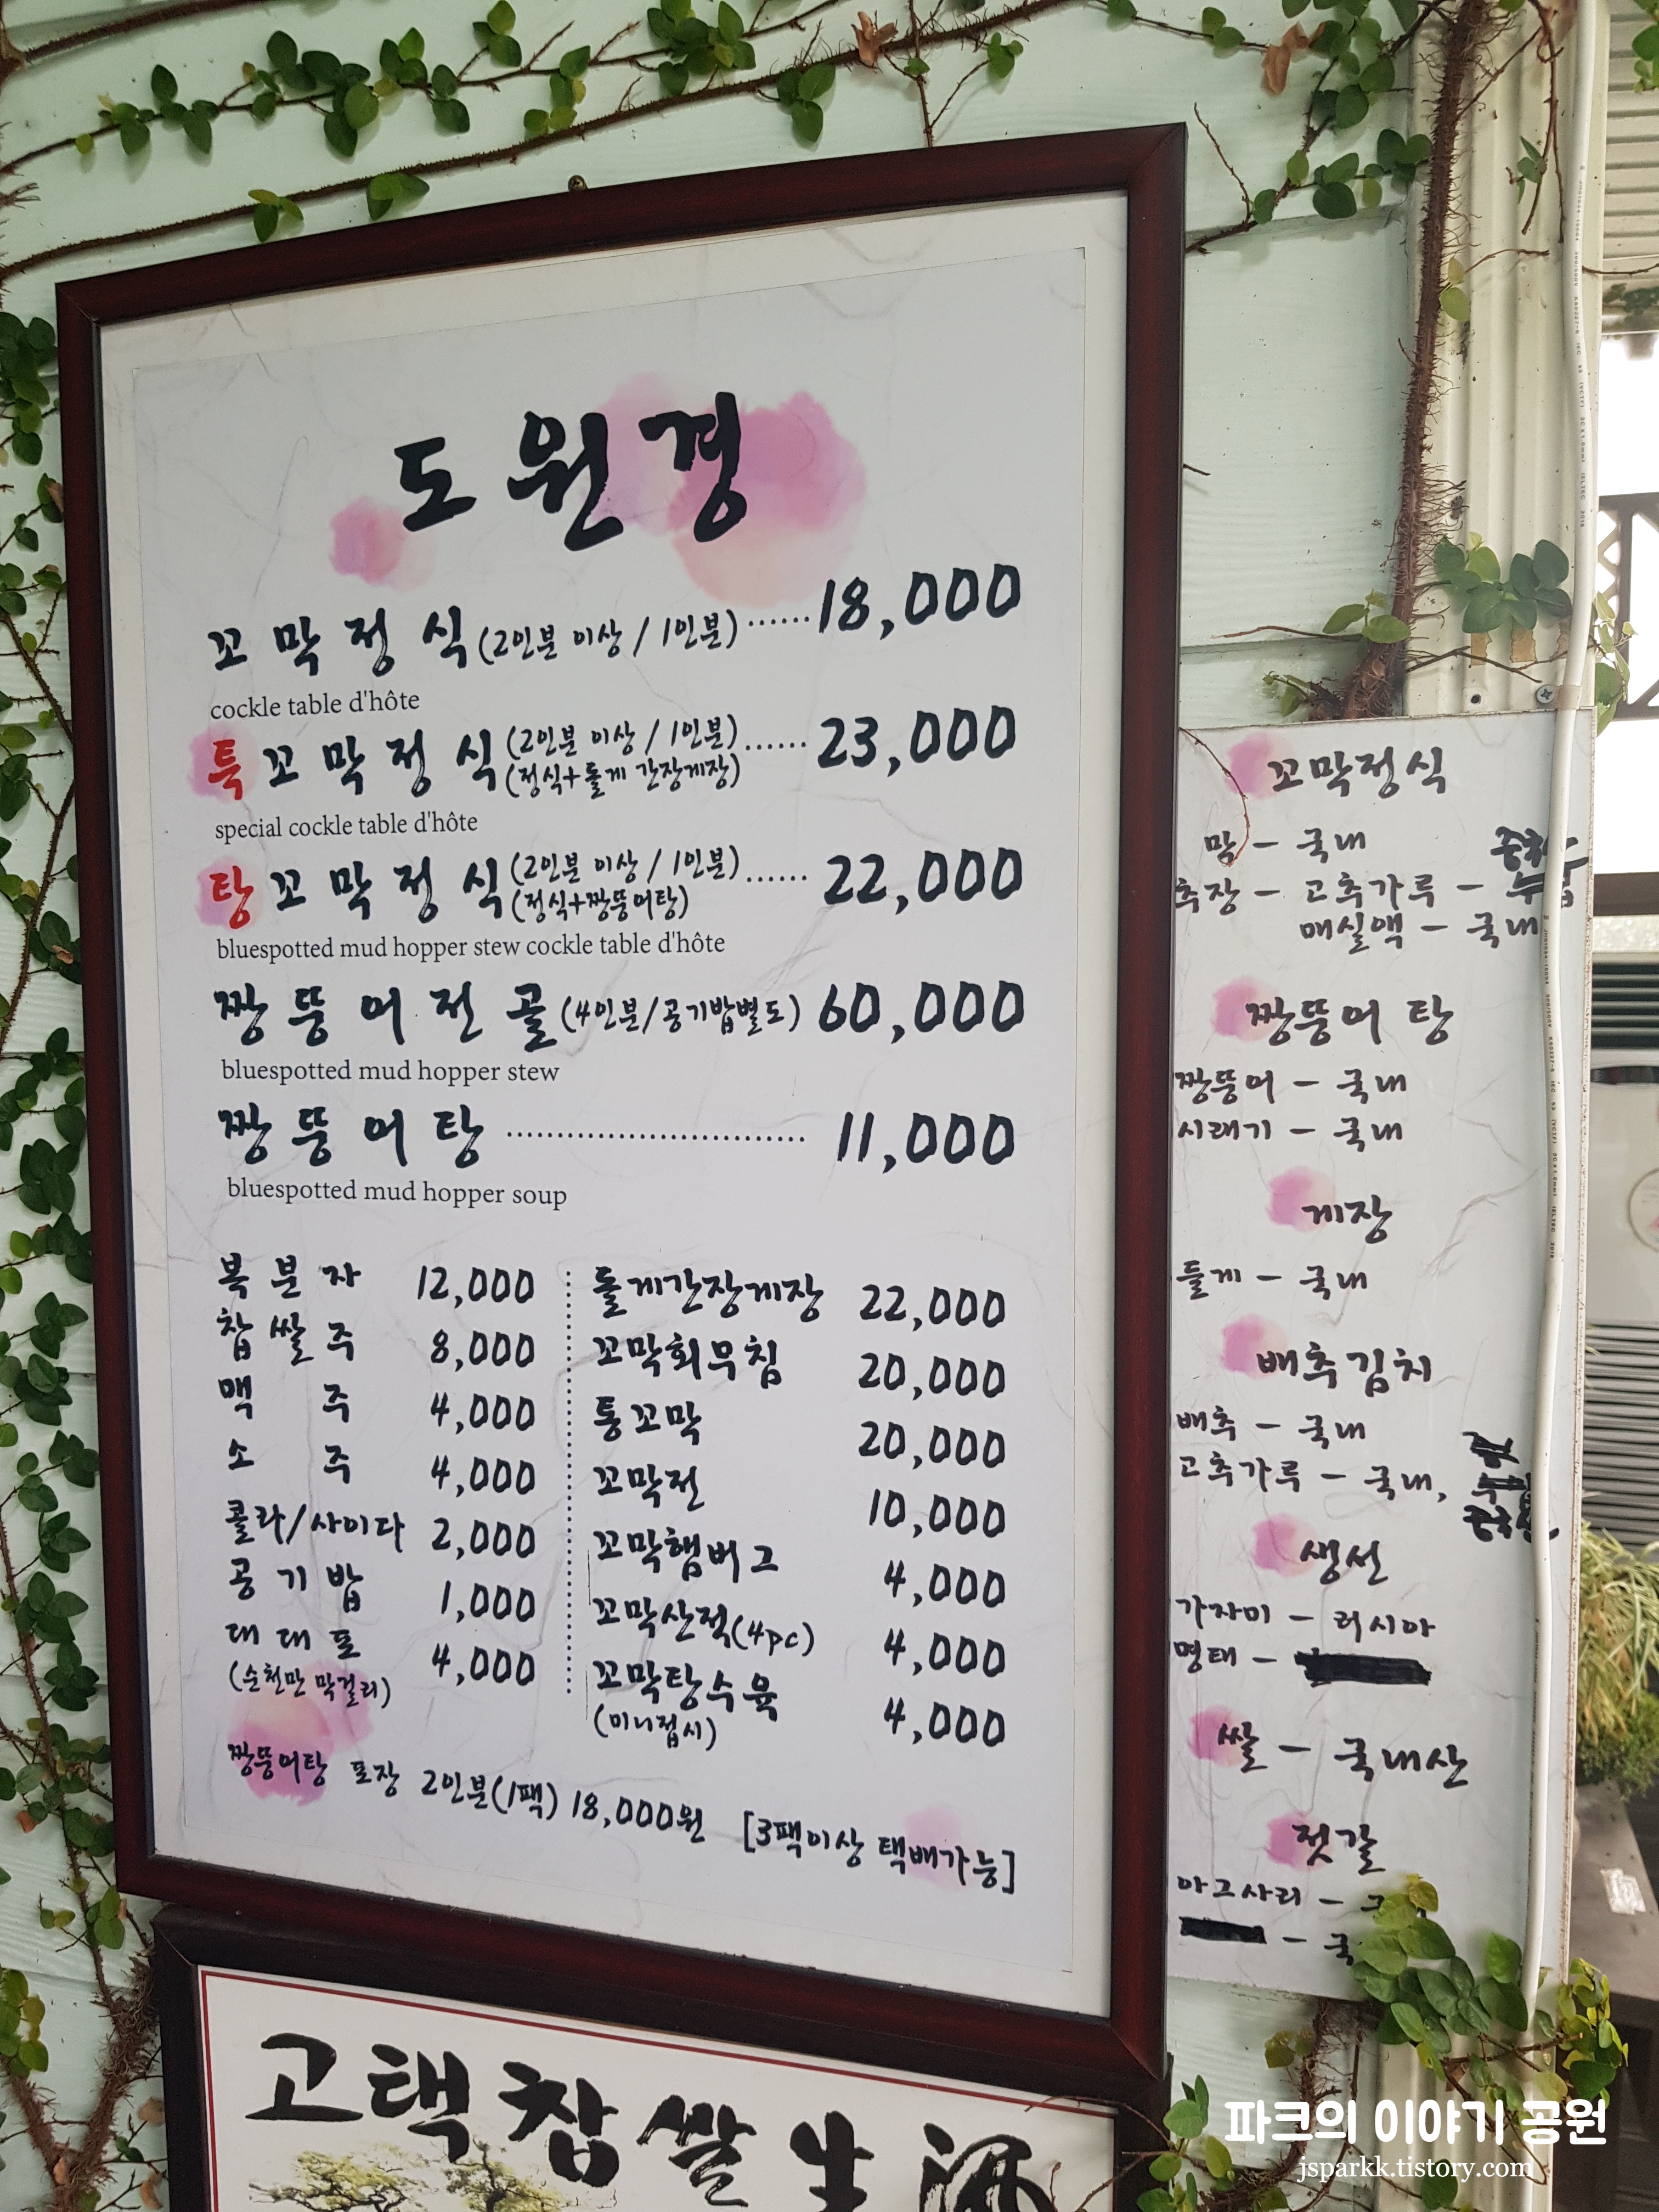 도원경
꼬막정식(2인분 이상 / 1인분)······18,000
cockle table d'hôte
특꼬막정식(2인분 이상 / 1인분)······23,000
(정식+돌게 간장게장)
special cockle table d'hôte
탕꼬막정식(2인분 이상 / 1인분)······22,000
(정식+짱뚱어탕)
bluespotted mud hopper stew cockle table d'hôte
짱뚱어전골(4인분/공기밥별도) 60,000
bluespotted mud hopper stew
짱뚱어탕······························11,000
bluespotted mud hopper soup
복분자 12,000
찹쌀주 8,000
맥주 4,000
소주 4,000
콜라/사이다 2,000
공기밥 1,000
대대포 4,000
(순천만 막걸리)
돌게간장게장 22,000
꼬막회무침 20,000
통꼬막 20,000
꼬막전 10,000
꼬막햄버그 4,000
꼬막산적(4pc) 4,000
꼬막탕수육 4,000
(미니접시)
짱뚱어탕 포장 2인분(1팩) 18,000원 [3팩이상 택배가능]
꼬막정식
막 - 국내
추장 - 고추가루 -
매실액 - 국내
짱뚱어탕
짱뚱어 - 국내
시래기 - 국내
게장
돌게 - 국내
배추김치
배추 - 국내
고추가루 - 국내,
생선
가자미 - 러시아
명태 -
쌀 - 국내산
젓갈
아그사리 -
고택찹쌀生酒
파크의 이야기 공원
jsparkk.tistory.com